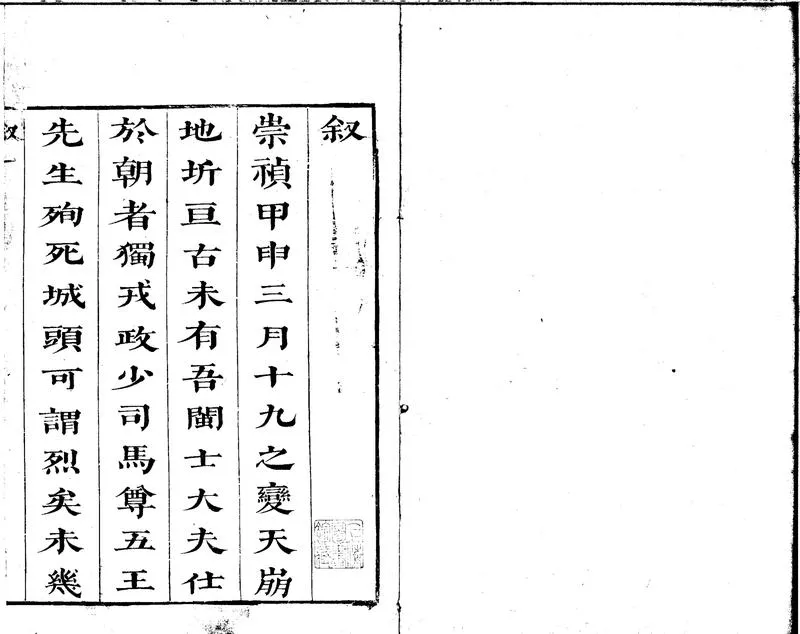 叙
崇禎甲申三月十九之變天崩
地圻亘古未有吾閩士大夫仕
於朝者獨戎政少司馬尊五王
先生殉死城頭可謂烈矣未幾
叙
一